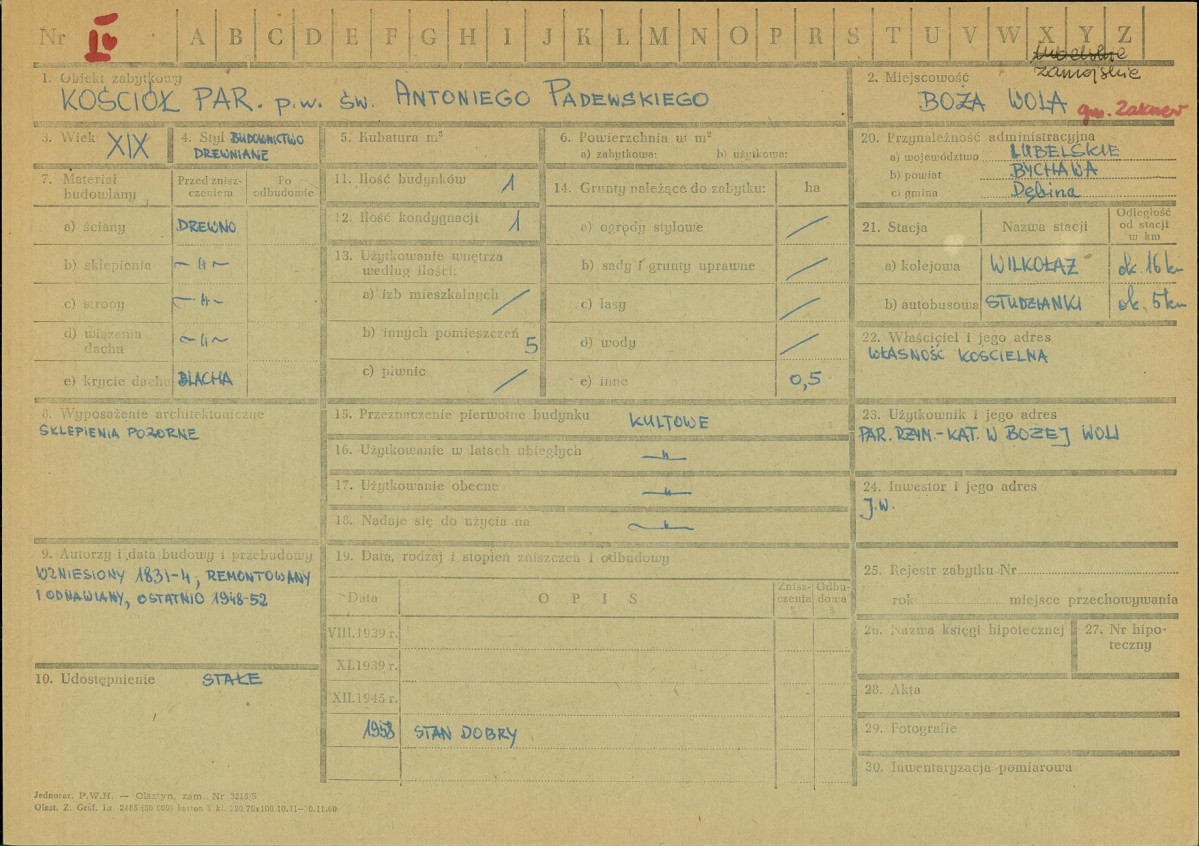 Nr IV A B C D E F G H I J K L M N O P R S T U V W X Y Z
lubelskie
zamojskie
1. Obiekt zabytkowy
KOŚCIÓŁ PAR. p.w. ŚW. ANTONIEGO PADEWSKIEGO
2. Miejscowość
BOŻA WOLA gm. Zakrzew
3. Wiek XIX
4. Styl BUDOWNICTWO
DREWNIANE
5. Kubatura m³
6. Powierzchnia w m²
a) zabytkowa: b) użytkowa:
7. Materiał
budowlany
Przed znisz-
czeniem
Po
odbudowie
a) ściany DREWNO
b) sklepienia –„–
c) stropy –„–
d) wiązania
dachu –„–
e) krycie dachu BLACHA
8. Wyposażenie architektoniczne
SKLEPIENIA POZORNE
9. Autorzy i data budowy i przebudowy
WZNIESIONY 1831-4, REMONTOWANY
I ODNAWIANY, OSTATNIO 1948-52
10. Udostępnienie STAŁE
11. Ilość budynków 1
12. Ilość kondygnacji 1
13. Użytkowanie wnętrza
według ilości:
a) izb mieszkalnych /
b) innych pomieszczeń 5
c) piwnic /
14. Grunty należące do zabytku: ha
a) ogrody stylowe /
b) sady i grunty uprawne /
c) lasy /
d) wody /
e) inne 0,5
15. Przeznaczenie pierwotne budynku KULTOWE
16. Użytkowanie w latach ubiegłych –„–
17. Użytkowanie obecne –„–
18. Nadaje się do użycia na –„–
19. Data, rodzaj i stopień zniszczeń i odbudowy
Data OPIS
Znisz-
czenia
%
Odbu-
dowa
%
VIII.1939 r.
XI.1939 r.
XII.1945 r.
1958 STAN DOBRY
20. Przynależność administracyjna
a) województwo LUBELSKIE
b) powiat BYCHAWA
c) gmina Dębina
21. Stacja Nazwa stacji
Odległość
od stacji
w km
a) kolejowa WILKOŁAZ ok. 16 km
b) autobusowa STUDZIANKI ok. 5 km
22. Właściciel i jego adres
WŁASNOŚĆ KOŚCIELNA
23. Użytkownik i jego adres
PAR. RZYM.-KAT. W BOŻEJ WOLI
24. Inwestor i jego adres
J.W.
25. Rejestr zabytku Nr
rok miejsce przechowywania
26. Nazwa księgi hipotecznej
27. Nr hipo-
teczny
28. Akta
29. Fotografie
30. Inwentaryzacja pomiarowa
Jednoraz. P.W.H. — Olsztyn, zam. Nr 3215/S
Olszt. Z. Graf.